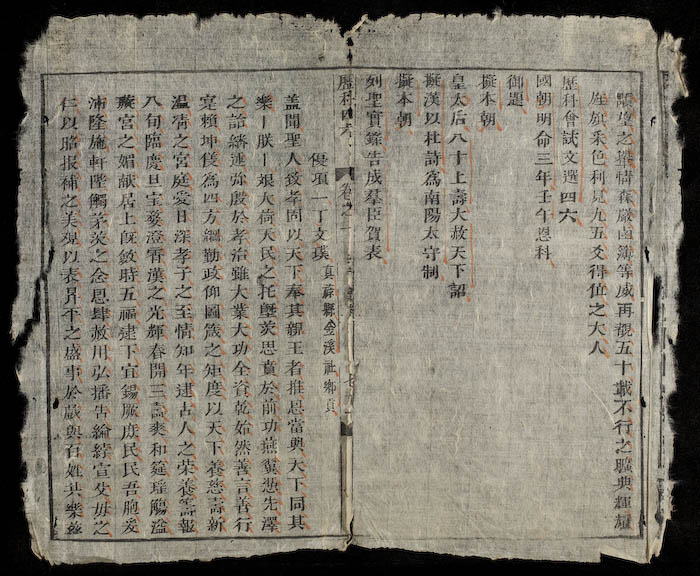 顒望之摯情森嚴鹵簿等威再覩五十載不行之曠典輝耀
旌旗采色利見九五爻得位之大人
歷科會試文選四六
國朝明命三年壬午恩科
御題
擬本朝
皇太后八十上壽大赦天下詔
擬漢以杜詩爲南陽太守制
擬本朝
列聖實錄告成羣臣賀表
歷科四六 卷之一
優項一丁文璞 真祿縣金溪社鄉貢
盖聞聖人致孝固以天下奉其親王者推恩當與天下同其
樂朕艱大荷天民之托塈茨思賁於前功燕翼懋先澤
之詒纘述弥殷於孝治雖大業大功全資乾始然善言善行
寔賴坤儀爲四方綱勤政仰圖箴之矩度以天下養慈壽新
溫凊之宮庭愛日深孝子之至情知年逮古人之榮養籌報
八旬臨慶旦宝婺澄霄漢之光輝春開三壽爽和筵瑤觴溢
璇宮之媚献居上旣斂時五福逮下宜錫厥庶民民吾胞爰
沛隆施軒墜觸茅茨之念思肆赦用弘播告綸綍宣父母之
仁以昭报補之美观以表昇平之盛事於戲與百姓共樂慈